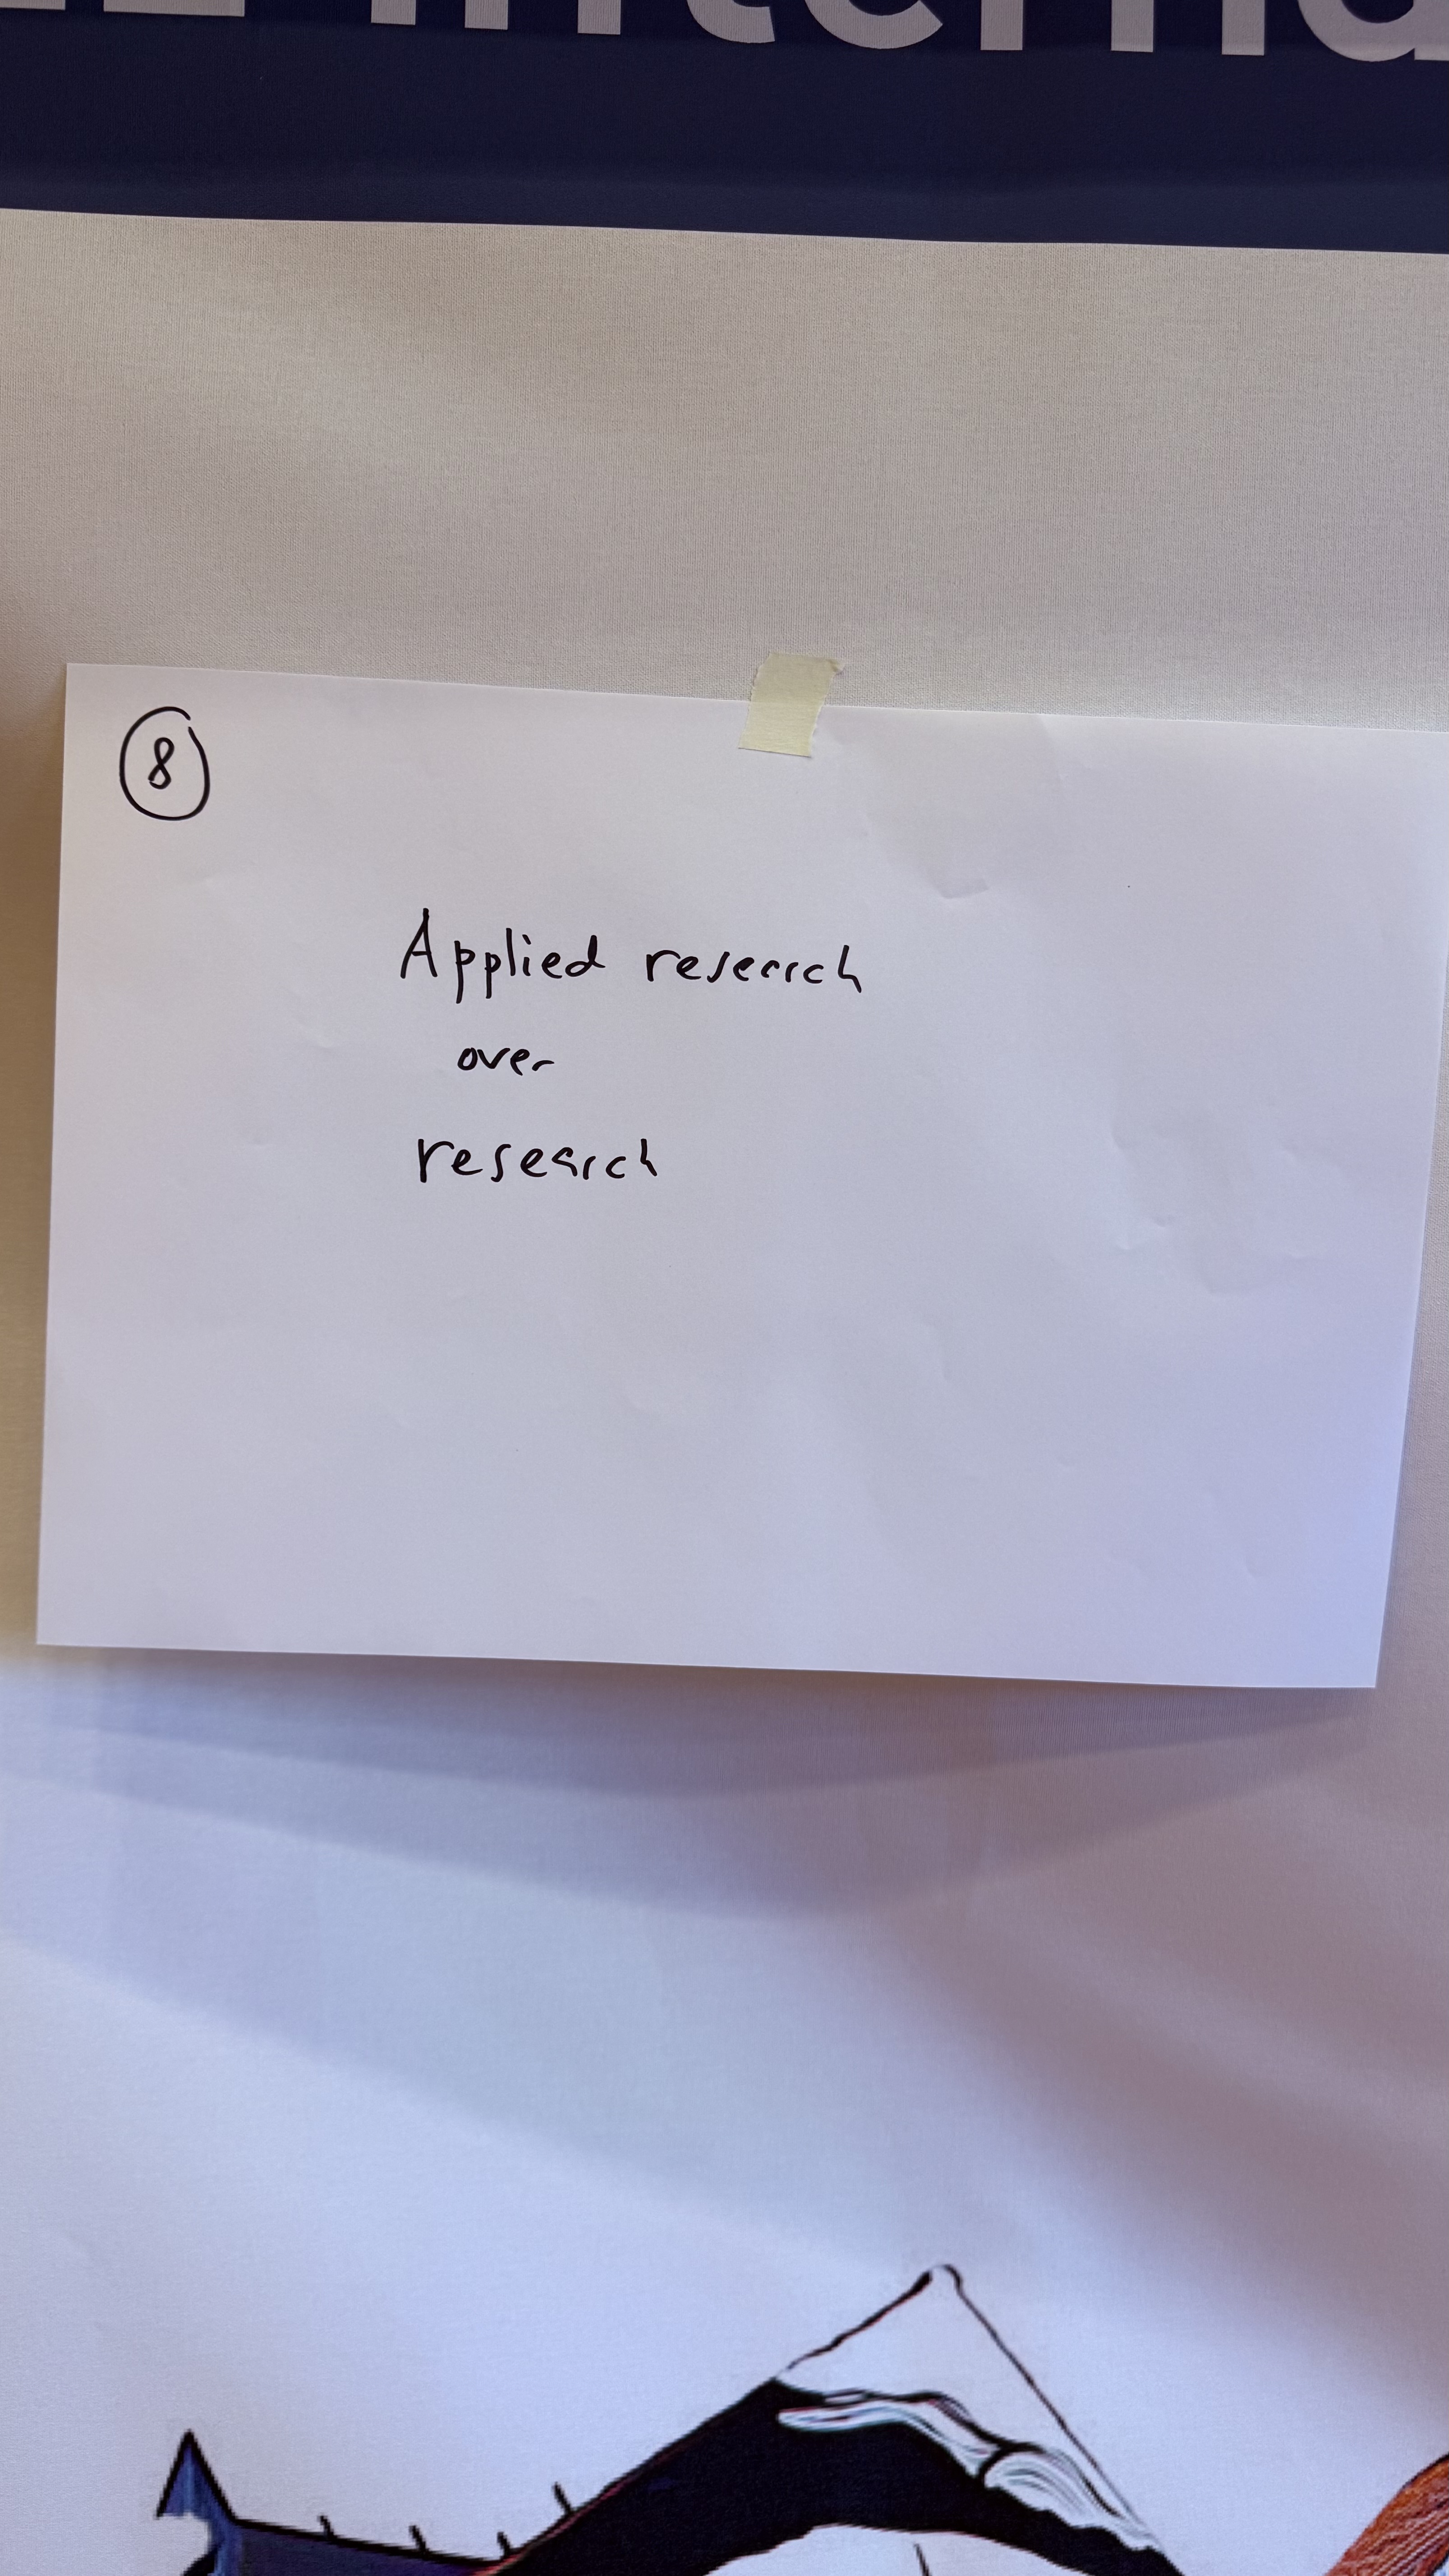 8
Applied research
over
research